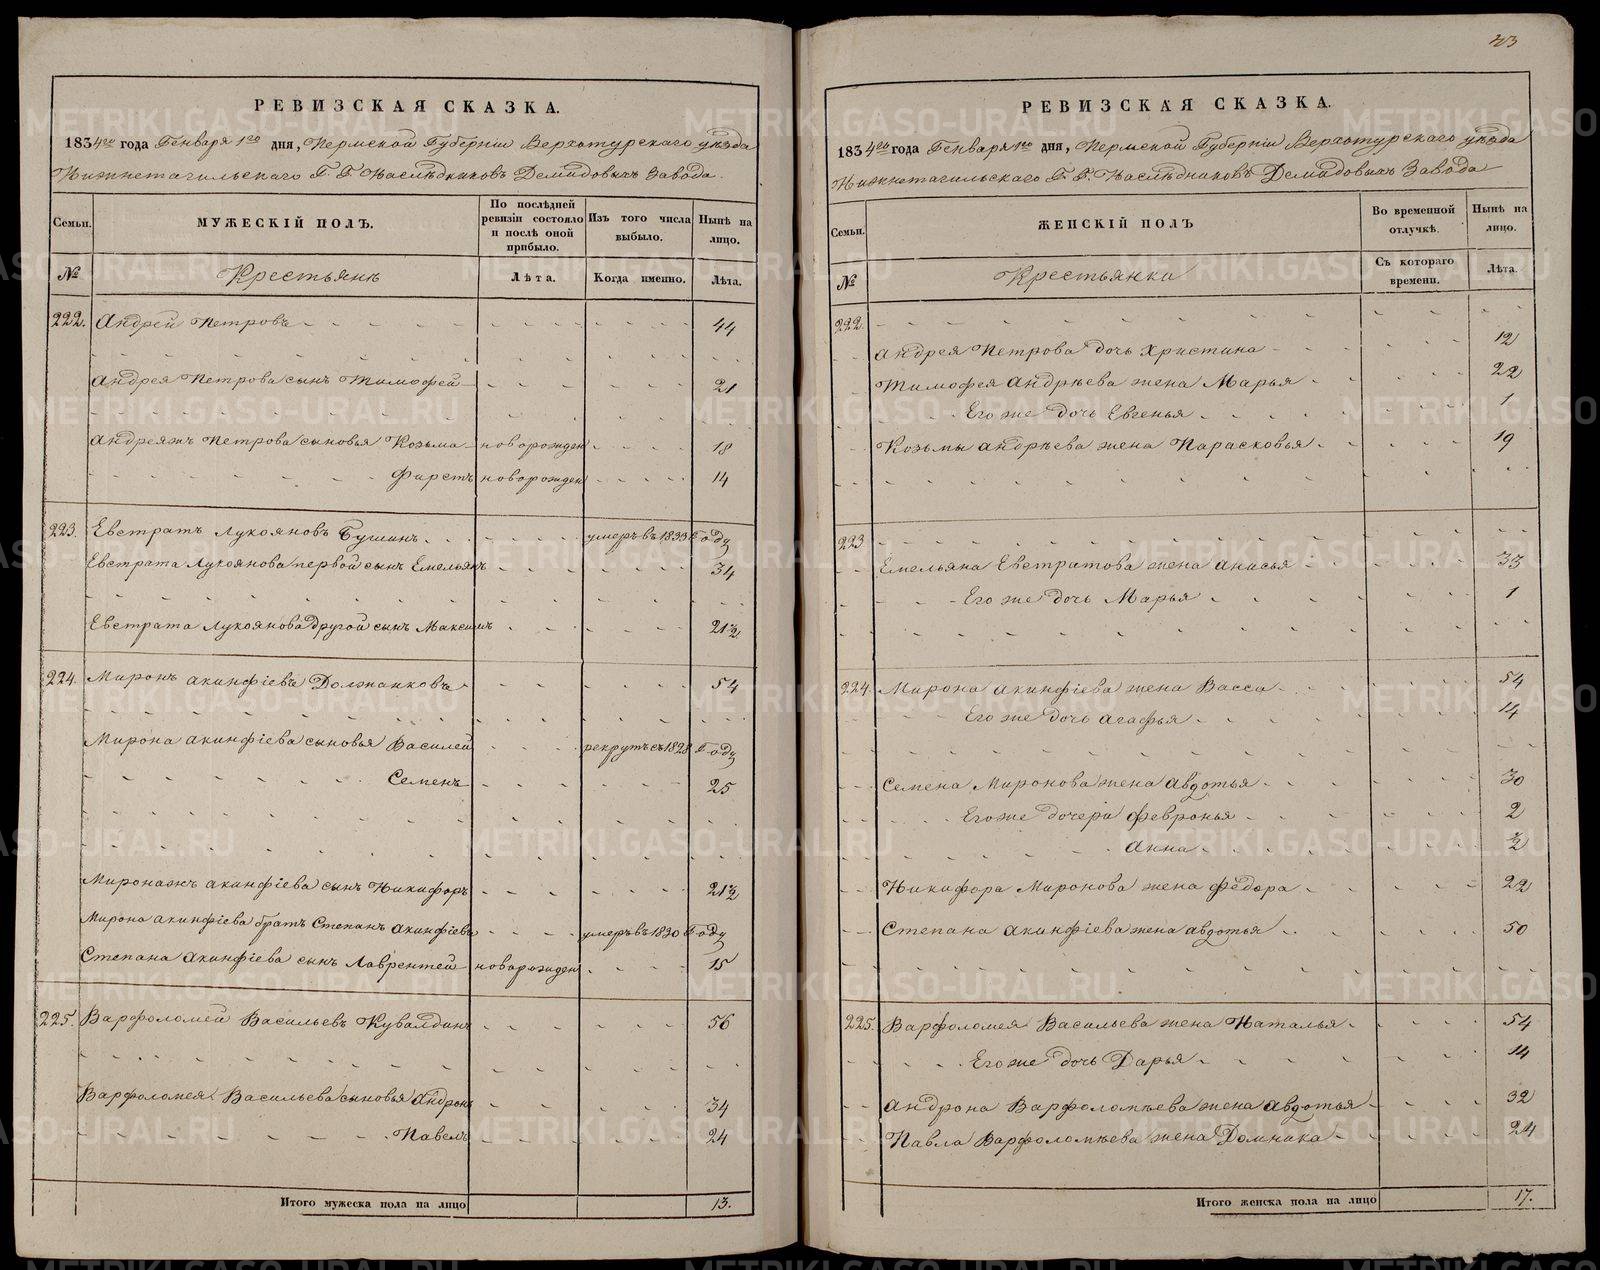 РЕВИЗСКАЯ СКАЗКА.
1834го года Генваря 1го дня, Пермской Губернiи Верхотурскаго уѣзда
Нижнетагильскаго Г. Г. Наслѣдниковъ Демидовыхъ Завода.
Семьи. МУЖЕСКIЙ ПОЛЪ. По послѣдней ревизiи состояло и послѣ оной прибыло. Изъ того числа выбыло. Нынѣ на лицо.
№ Крестьянѣ Лѣта. Когда именно. Лѣта.
222. Андрей Петровъ 44
Андрея Петрова сынъ Тимофей 21
Андреяжъ Петрова сыновья Козьма новорожден 18
Фирстъ новорожден 14
223. Евстратъ Лукояновъ Бушинъ умеръ въ 1833 Году
Евстрата Лукоянова первой сынъ Емельянъ 34
Евстрата Лукоянова другой сынъ Максимъ 21½
224. Миронъ Акинфiевъ Должанковъ 54
Мирона Акинфiева сыновья Василей рекрутъ съ 1828 Году
Семенъ 25
Миронажъ Акинфiева сынъ Никифоръ 21½
Мирона Акинфiева братъ Степанъ Акинфiевъ умеръ въ 1830 Году
Степана Акинфiева сынъ Лаврентей новорожден 15
225. Варфоломей Васильевъ Кувалдинъ 56
Варфоломея Васильева сыновья Андронъ 34
Павелъ 24
Итого мужеска пола на лицо 13.
43
РЕВИЗСКАЯ СКАЗКА.
1834го года Генваря 1го дня, Пермской Губернiи Верхотурскаго уѣзда
Нижнетагильскаго Г. Г. Наслѣдниковъ Демидовыхъ Завода
Семьи. ЖЕНСКIЙ ПОЛЪ Во временной отлучкѣ. Нынѣ на лицо.
№ Крестьянки Съ котораго времени. Лѣта.
222.
Андрея Петрова дочь Христина 12
Тимофея Андрѣева жена Марья 22
Его же дочь Евгенья 1
Козьмы Андрѣева жена Парасковья 19
223
Емельяна Евстратова жена Анисья 33
Его же дочь Марья 1
224. Мирона Акинфiева жена Васса 54
Его же дочь Агафья 14
Семена Миронова жена Авдотья 30
Его же дочери Февронья 2
Анна ½
Никифора Миронова жена Федора 22
Степана Акинфiева жена Авдотья 50
225. Варфоломея Васильева жена Наталья 54
Его же дочь Дарья 14
Андрона Варфоломѣева жена Авдотья 32
Павла Варфоломѣева жена Домника 24
Итого женска пола на лицо 17.
METRIKI.GASO-URAL.RU